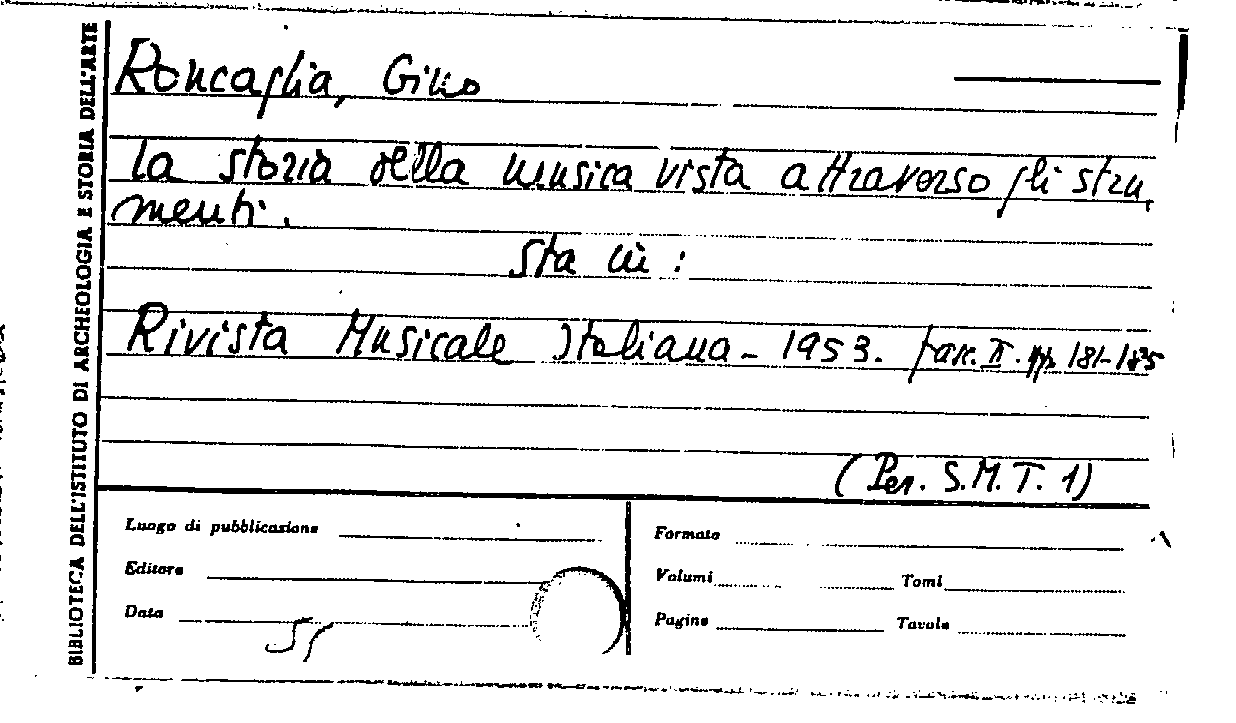 BIBLIOTECA DELL'ISTITUTO DI ARCHEOLOGIA E STORIA DELL'ARTE
Roncaglia, Gino
la storia della musica vista attraverso gli stru,
menti.
Sta in:
Rivista Musicale Italiana - 1953. fasc. II. pp. 181-185
(Per. S.M.T. 1)
Luogo di pubblicazione
Editore
Data
Formato
Volumi Tomi
Pagine Tavole